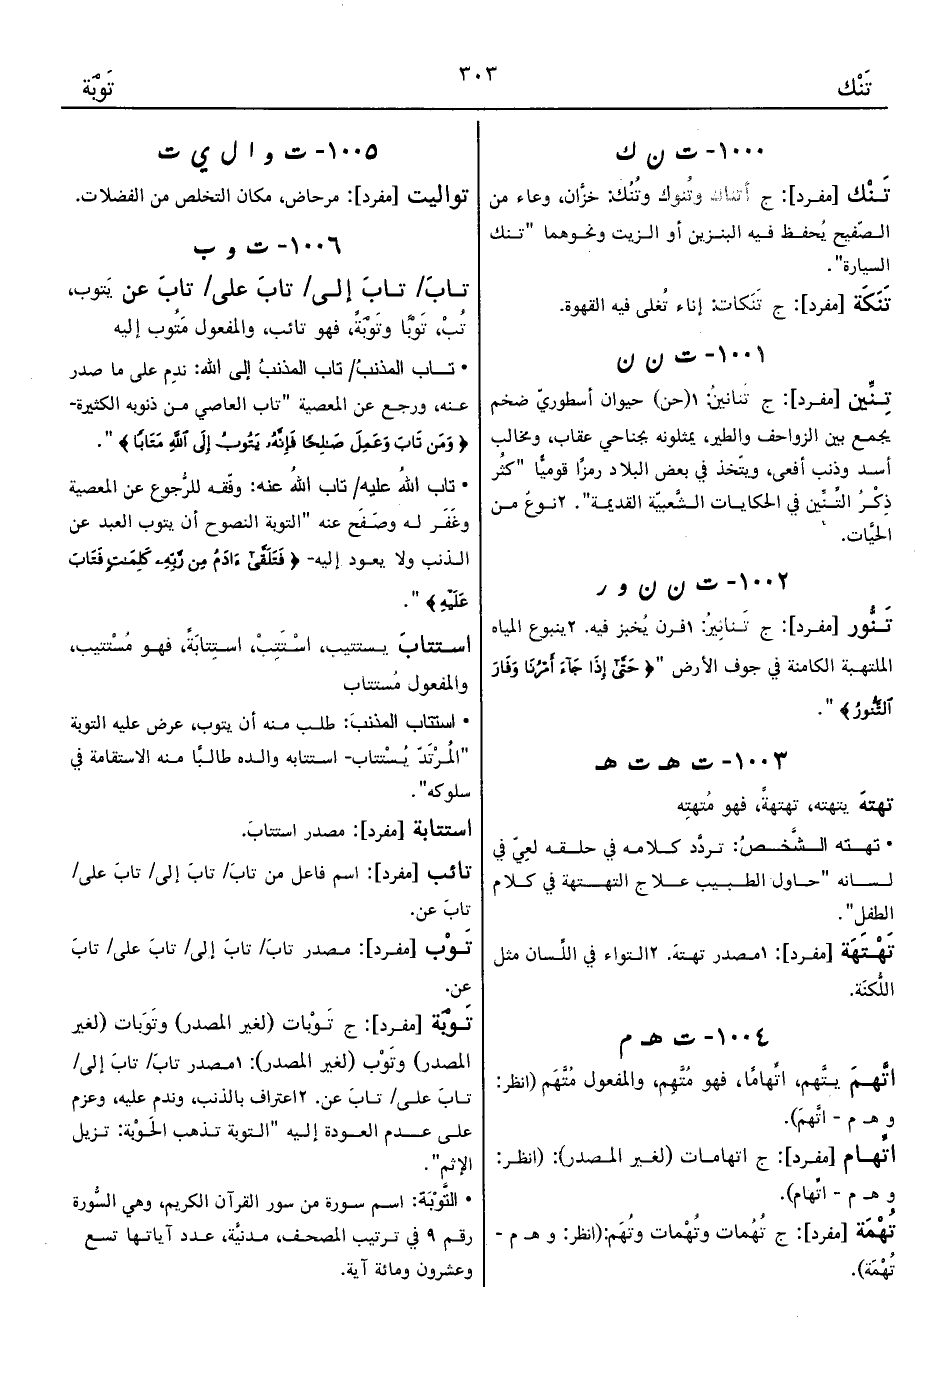 تَنْك
٣٠٣
تَوْبَة
١٠٠٠- ت ن ك
تَـنْك [مفرد]: ج أتناك وتُنوك وتُنُك: خزَّان، وعاء من
الصّفيح يُحفظ فيه البنزين أو الزيت ونحوهما "تنك
السيارة".
تَنَكَة [مفرد]: ج تَنَكات: إناء تُغلى فيه القهوة.
١٠٠١- ت ن ن
تِـنِّين [مفرد]: ج تنانينُ: ١(حن) حيوان أسطوريّ ضخم
يجمع بين الزواحف والطير، يمثلونه بجناحي عقاب، ومخالب
أسد وذنب أفعى، ويتّخذ في بعض البلاد رمزًا قوميًّا "كثُر
ذِكْرُ التِّنِّين في الحكايات الشَّعبيّة القديمة". ٢نوعَ من
الحيَّات.
١٠٠٢- ت ن ن و ر
تَـنُّور [مفرد]: ج تَنانِيرُ: ١فرن يُخبز فيه. ٢ينبوع المياه
الملتهبة الكامنة في جوف الأرض "﴿ حَتَّىٰٓ إِذَا جَآءَ أَمْرُنَا وَفَارَ
ٱلتَّنُّورُ﴾ ".
١٠٠٣- ت هـ ت هـ
تهتهَ يتهته، تهتهةً، فهو مُتهتِه
• تهته الشَّخصُ: تردَّد كلامه في حلقه لعِيّ في
لسانه "حاول الطبيب علاج التهتهة في كلام
الطفل".
تَهْتَهَة [مفرد]: ١مصدر تهتهَ. ٢التواء في اللَّسان مثل
اللُّكنَة.
١٠٠٤- ت هـ م
اتَّهمَ يتَّهم، اتِّهامًا، فهو مُتَّهِم، والمفعول مُتَّهَم (انظر:
و هـ م - اتَّهمَ).
اتِّهام [مفرد]: ج اتهامات (لغير المصدر): (انظر:
و هـ م - اتِّهام).
تُهْمَة [مفرد]: ج تُهُمات وتُهْمات وتُهَم:(انظر: و هـ م -
تُهْمَة).
١٠٠٥- ت و ا ل ي ت
تواليت [مفرد]: مرحاض، مكان التخلص من الفضلات.
١٠٠٦- ت و ب
تـابَ/ تـابَ إلـى/ تابَ على/ تابَ عن يَتوب،
تُبْ، تَوْبًا وتَوْبَةً، فهو تائب، والمفعول مَتُوب إليه
• تـاب المذنبُ/ تاب المذنبُ إلى الله: ندِم على ما صدر
عنه، ورجع عن المعصية "تاب العاصي من ذنوبه الكثيرة-
﴿ وَمَن تَابَ وَعَمِلَ صَـٰلِحًا فَإِنَّهُۥ يَتُوبُ إِلَى ٱللَّهِ مَتَابًا﴾ ".
• تاب اللهُ عليه/ تاب اللهُ عنه: وفّقه للرُّجوع عن المعصية
وغَفَر له وصَفَح عنه "التوبة النصوح أن يتوب العبد عن
الذنب ولا يعود إليه- ﴿ فَتَلَقَّىٰٓ ءَادَمُ مِن رَّبِّهِۦ كَلِمَـٰتٍ فَتَابَ
عَلَيْهِ﴾ ".
استتابَ يستتيب، اسْتَتِبْ، استتابَةً، فهو مُسْتتيب،
والمفعول مُستتاب
• استتاب المذنبَ: طلب منه أن يتوب، عرض عليه التوبة
"المُرْتَدّ يُسْتتاب- استتابه والده طالبًا منه الاستقامة في
سلوكه".
استتابة [مفرد]: مصدر استتابَ.
تائب [مفرد]: اسم فاعل من تابَ/ تابَ إلى/ تابَ على/
تابَ عن.
تَـوْب [مفرد]: مصدر تابَ/ تابَ إلى/ تابَ على/ تابَ
عن.
تَوْبَة [مفرد]: ج تَوْبات (لغير المصدر) وتَوَبات (لغير
المصدر) وتَوْب (لغير المصدر): ١مصدر تابَ/ تابَ إلى/
تـابَ على/ تـابَ عن. ٢اعتراف بالذنب، وندم عليه، وعزم
على عدم العودة إليه "التوبة تذهب الحَوْبة: تزيل
الإثم".
• التَّوْبَة: اسم سورة من سور القرآن الكريم، وهي السُّورة
رقم ٩ في ترتيب المصحف، مدنيَّة، عدد آياتها تسع
وعشرون ومائة آية.